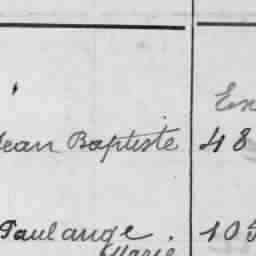 En
Jean Baptiste 48
Paulange. 105
Marie